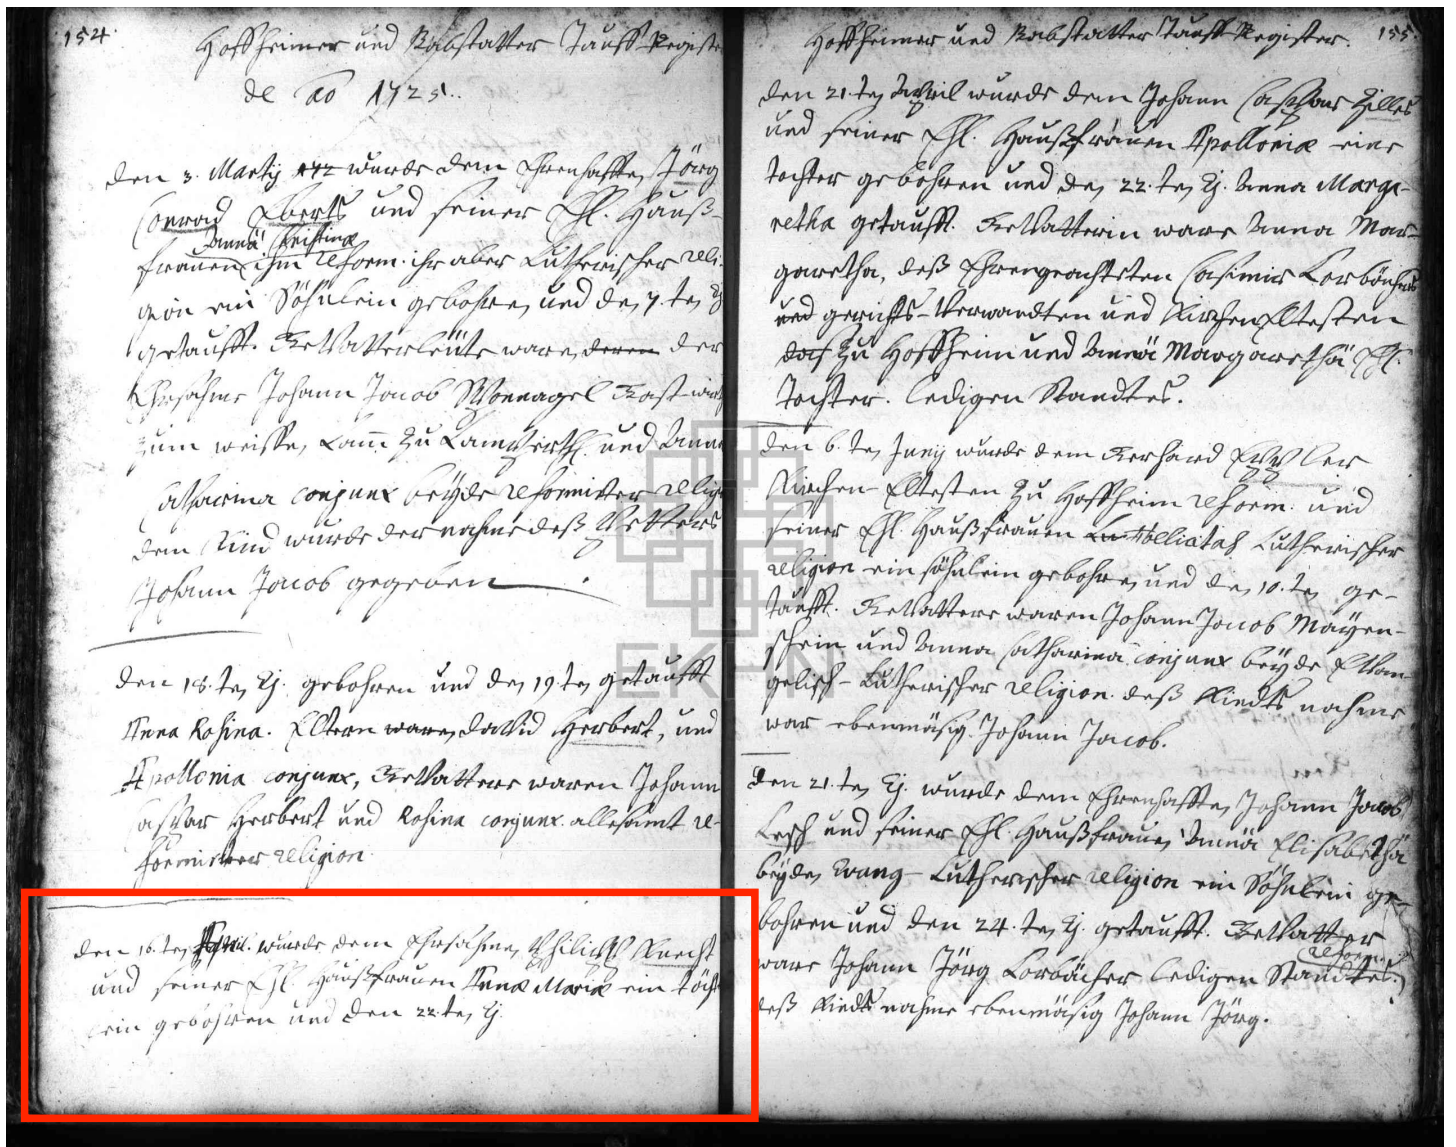 154.
Hoffheimer und Nabstatter Tauff-Registe
de Ao 1725.
den 3. Martij 172 wurde dem Ehrenhafften Jörg
Conrad Eberts und seiner Ehl. Hauß-
Annä Christinæ
frauen ihm reform. ihr aber Lutherischer reli-
gion ein Söhnlein gebohren und den 7.ten
getaufft. Gevatterleüte waren deren der
Ehrsahme Johann Jacob Wonnagel Gast-wirth
zum weissen Lamm zu Lampertheim und Anna
Catharina conjunx beÿde reformirter religi
dem Kind wurde der nahme deß Petters
Johann Jacob gegeben
den 18.ten Ej. gebohren und den 19.ten getaufft
Anna Rosina. Eltern waren David Herbert, und
Apollonia conjunx, Gevattere waren Johann
Caspar Herbert und Rosina conjunx allesamt re-
formirter religion.
den 16.ten April. wurde dem Ehrsahmen Philipp Knecht
und seiner Ehl. Haußfrauen Annæ Mariæ ein töcht
lein gebohren und den 22.ten Ej.
Hoffheimer und Nabstatter Tauff-Register. 155.
den 21.ten April wurde dem Johann Caspar Zilles
und seiner Ehl. Haußfrauen Apolloniæ eine
Tochter gebohren und den 22.ten Ej. Anna Marga-
retha getaufft. Gevatterin ware Anna Mar-
garetha, deß Ehrengeachteten Casimir Lorbächers
und gerichts-Verwandten und KirchenEltesten
das zu Hoffheim und Annä Margarethä Ehl.
Tochter. ledigen Standtes.
den 6.ten Junij wurde dem Gerhard Eppler
Kirchen-Eltesten zu Hoffheim reform. und
seiner Ehl. Haußfrauen Lutherischer
religion ein söhnlein gebohren und den 10.ten ge-
taufft. Gevattere waren Johann Jacob Mäyen-
schein und Anna Catharina conjunx beÿde Evan-
gelisch-Lutherischer religion. deß Kindts nahme
war ebenmäsig Johann Jacob.
den 21.ten Ej. wurde dem Ehrenhafften Johann Jacob
Lesch und seiner Ehl. Haußfrauen Annä Elisabethä
beÿden Evang-Lutherischer religion ein Söhnlein ge-
bohren und den 24.ten Ej. getaufft. Gevatter
reform.
ware Johann Jörg Lorbächer ledigen Standtes.
deß Kindts nahme ebenmäsig Johann Jörg.
EKHN